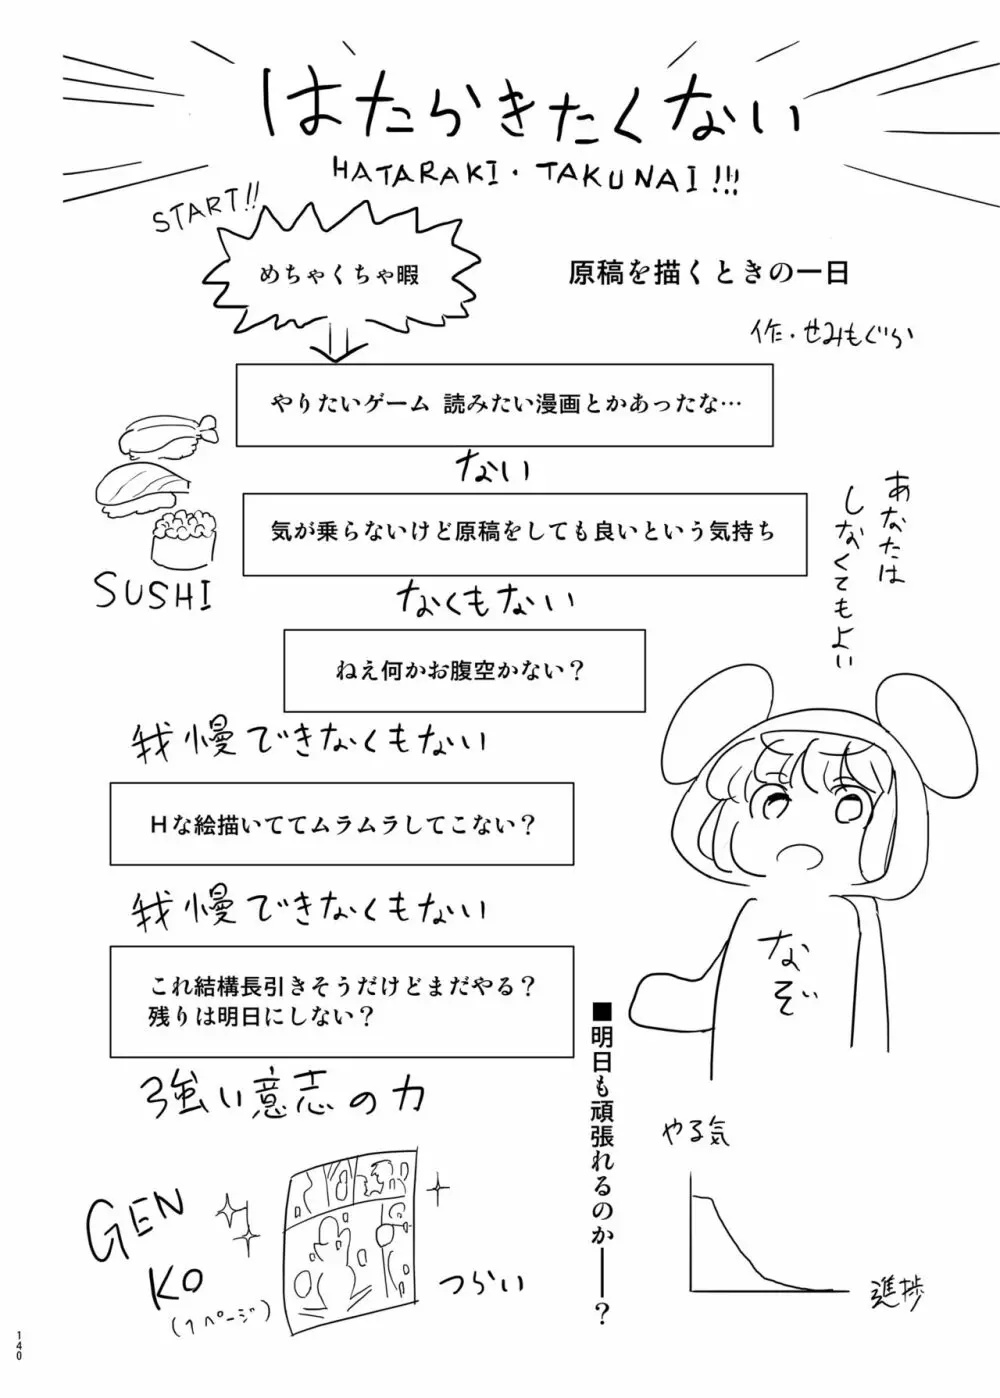 はたらきたくない
HATARAKI・TAKUNAI!!!
START!!
めちゃくちゃ暇
原稿を描くときの一日
作・せみもぐら
やりたいゲーム 読みたい漫画とかあったな…
ない
気が乗らないけど原稿をしても良いという気持ち
なくもない
SUSHI
あなたは
しなくてもよい
ねえ何かお腹空かない？
我慢できなくもない
Hな絵描いててムラムラしてこない？
我慢できなくもない
これ結構長引きそうだけどまだやる？
残りは明日にしない？
強い意志の力
なぞ
■明日も頑張れるのか――？
やる気
進捗
GEN
KO
(1ページ)
つらい
140